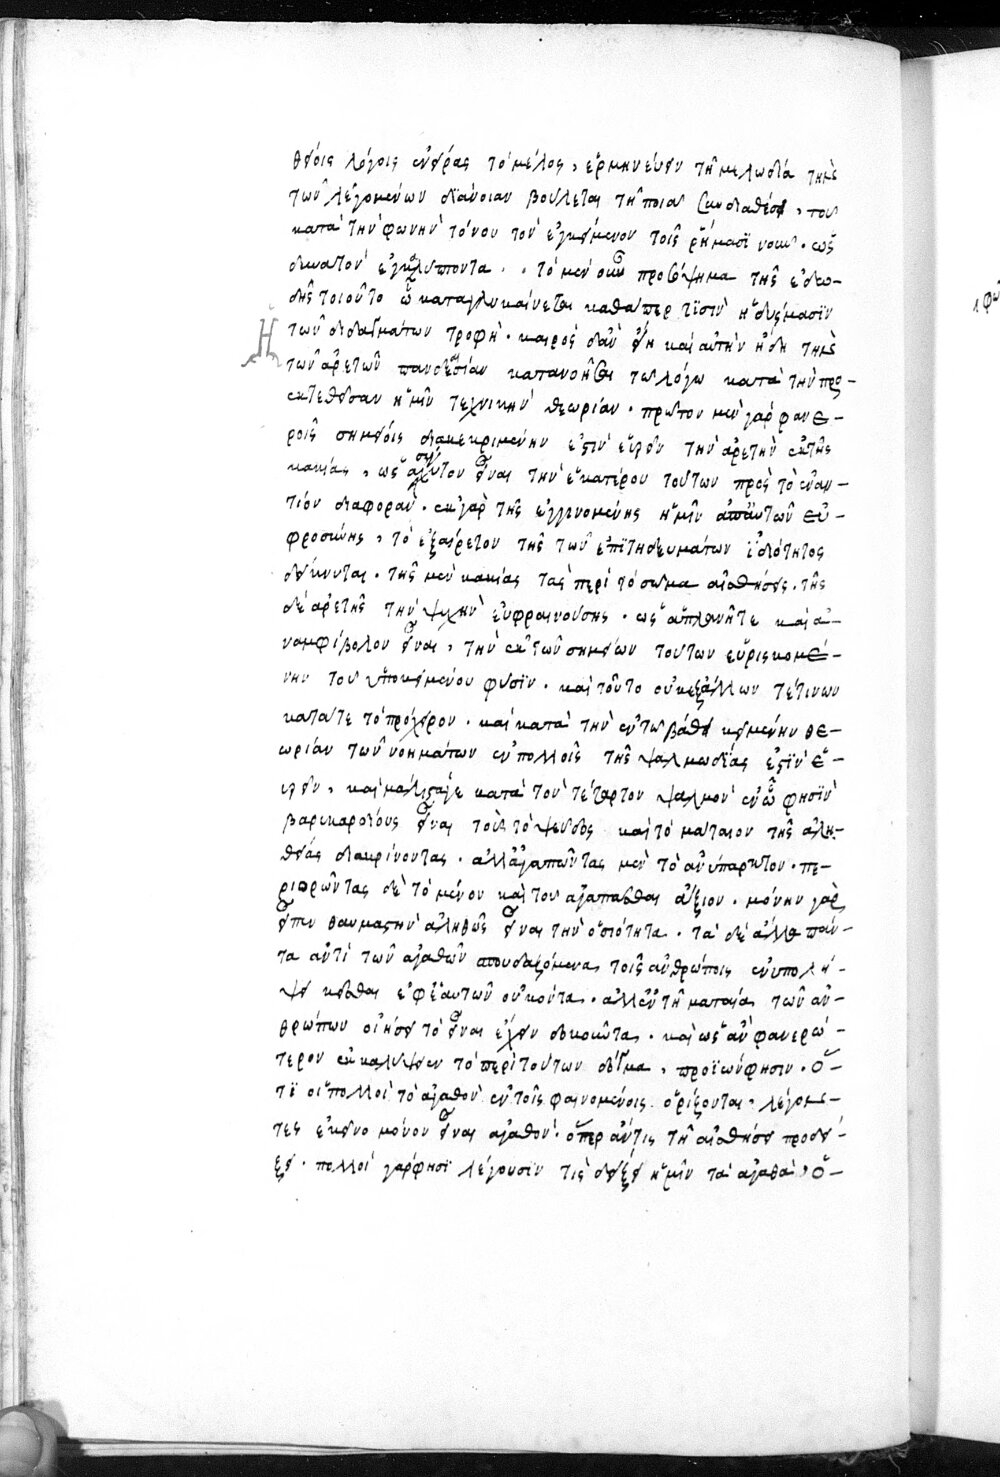 θείοις λόγοις ἐνείρας τὸ μέλος, ἑρμηνεύειν τῇ μελωδίᾳ τὴν
τῶν λεγομένων διάνοιαν βούλεται τῇ ποιᾷ συνδιαθέσει, τοῦ
κατὰ τὴν φωνὴν τόνου τὸν ἐγκείμενον τοῖς ῥήμασι νοῦν. ὡς
δυνατὸν ἐκκαλύπτοντα. τὸ μὲν οὖν προόψημα τῆς ἐδω-
δῆς τοιοῦτο ᾧ καταγλυκαίνεται καθάπερ τισὶν ἡδύσμασιν
τῶν διδαγμάτων τροφή. καιρὸς δ' ἂν εἴη καὶ αὐτὴν ἤδη τὴν
τῶν ἀρετῶν πανδεσίαν κατανοῆσαι τῷ λόγῳ κατὰ τὴν προ-
εκτεθεῖσαν ἡμῖν τεχνικὴν θεωρίαν. πρῶτον μὲν γὰρ φανε-
ροῖς σημείοις διακεκριμένην ἐστὶν εὑρεῖν τὴν ἀρετὴν ἐκ τῆς
κακίας, ὡς εἶναι τὴν ἑκατέρου τούτων πρὸς τὸ ἐναν-
τίον διαφοράν. ἐκ γὰρ τῆς ἐγγινομένης ἡμῖν ἀπ' αὐτῶν εὐ-
φροσύνης, τὸ ἐξαίρετον τῆς τῶν ἐπιτηδευμάτων ἰδιότητος
δείκνυται. τῆς μὲν κακίας τὰς περὶ τὸ σῶμα αἰσθήσεις. τῆς
δὲ ἀρετῆς τὴν ψυχὴν εὐφραινούσης. ὡς ἀπλανῆ τε καὶ ἀ-
ναμφίβολον εἶναι, τὴν ἐκ τῶν σημείων τούτων εὑρισκομέ-
νην τοῦ ὑποκειμένου φύσιν. καὶ τοῦτο οὐκ ἐξ ἄλλων τέ τινων
κατά τε τὸ πρόχειρον. καὶ κατὰ τὴν ἐν τῷ βάθει κειμένην θε-
ωρίαν τῶν νοημάτων ἐν πολλοῖς τῆς ψαλμωδίας ἐστὶν εὑ-
ρεῖν, καὶ μάλιστά γε κατὰ τὸν τέταρτον ψαλμὸν ἐν ᾧ φησὶν
βαρυκαρδίους εἶναι τοὺς τὸ ψεῦδος καὶ τὸ μάταιον τῆς ἀλη-
θείας διακρίνοντας. ἀλλ' ἀγαπῶντας μὲν τὸ ἀνύπαρκτον. πε-
ριορῶντας δὲ τὸ μένον καὶ τοῦ ἀγαπᾶσθαι ἄξιον. μόνην γὰρ
εἶπεν θαυμαστὴν ἀληθῶς εἶναι τὴν ὁσιότητα. τὰ δὲ ἄλλα πάν-
τα ἀντὶ τῶν ἀγαθῶν σπουδαζόμενα τοῖς ἀνθρώποις ἐν ὑπολή-
ψει κεῖσθαι ἐφ' ἑαυτῶν οὐκ ὄντα. ἀλλ' ἐν τῇ ματαίᾳ τῶν ἀν-
θρώπων οἰήσει τὸ εἶναι ἔχειν δοκοῦντα. καὶ ὡς ἂν φανερώ-
τερον ἐκκαλύψειεν τὸ περὶ τούτων δόγμα, προϊών φησιν. ὅ-
τι οἱ πολλοὶ τὸ ἀγαθὸν ἐν τοῖς φαινομένοις ὁρίζονται, λέγον-
τες ἐκεῖνο μόνον εἶναι ἀγαθὸν. ὅπερ ἄν τις τῇ αἰσθήσει προσδεί-
ξει. πολλοὶ γάρ φησι λέγουσιν τίς δείξει ἡμῖν τὰ ἀγαθά, ὅ-